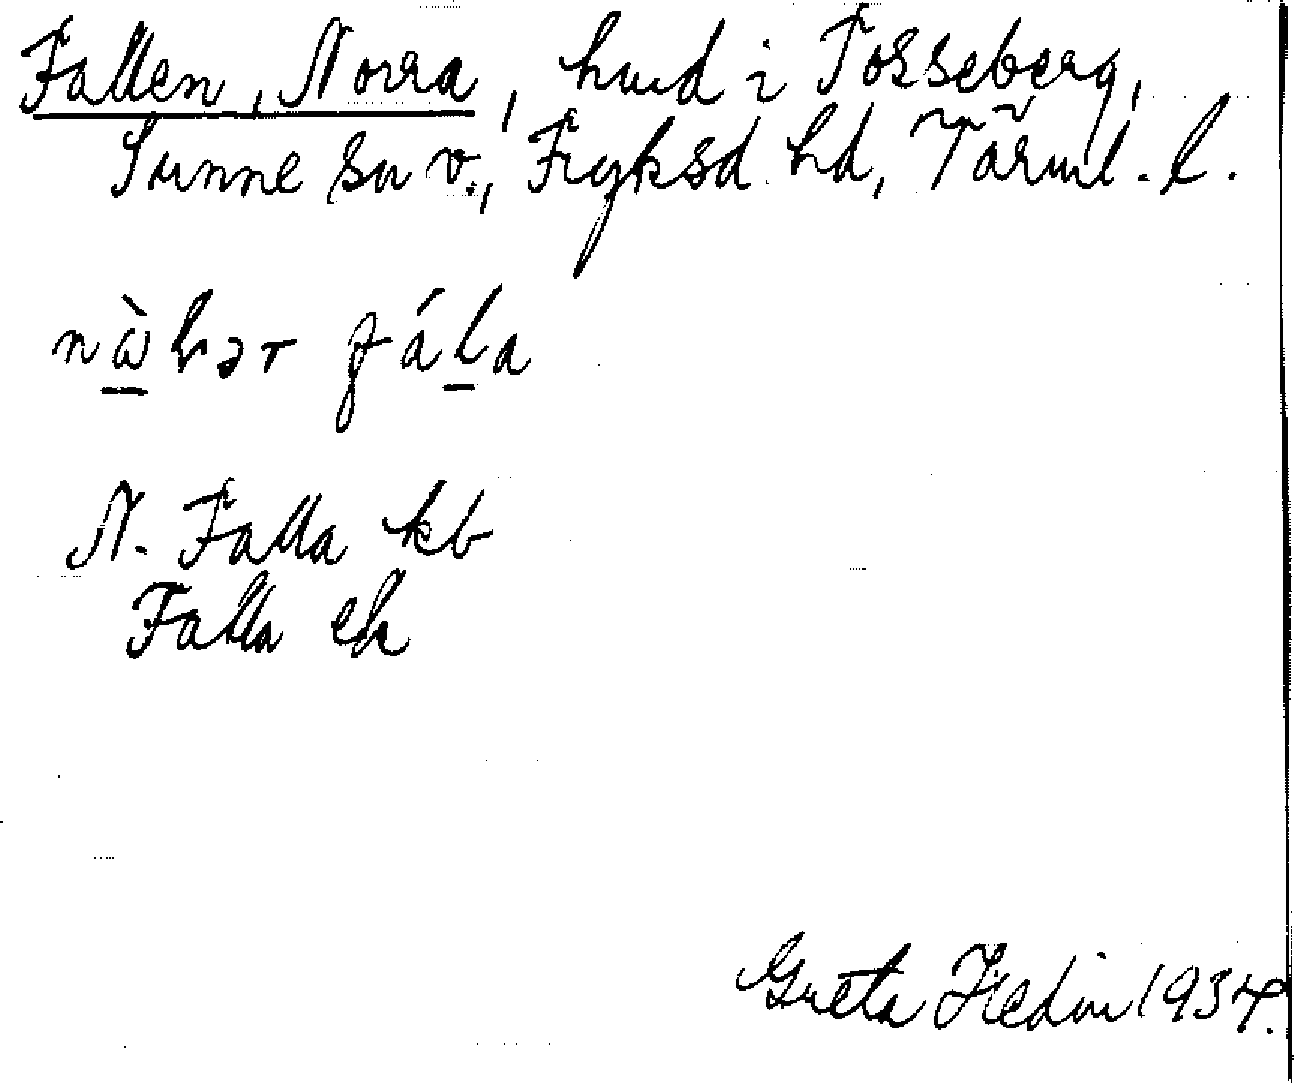 Fallen, Norra, hmd i Tosseberg,
Sunne sn v., Fryksd hd, Värml. l.
fála
N. Falla kb
Falla ek
Greta Hedin 1934.